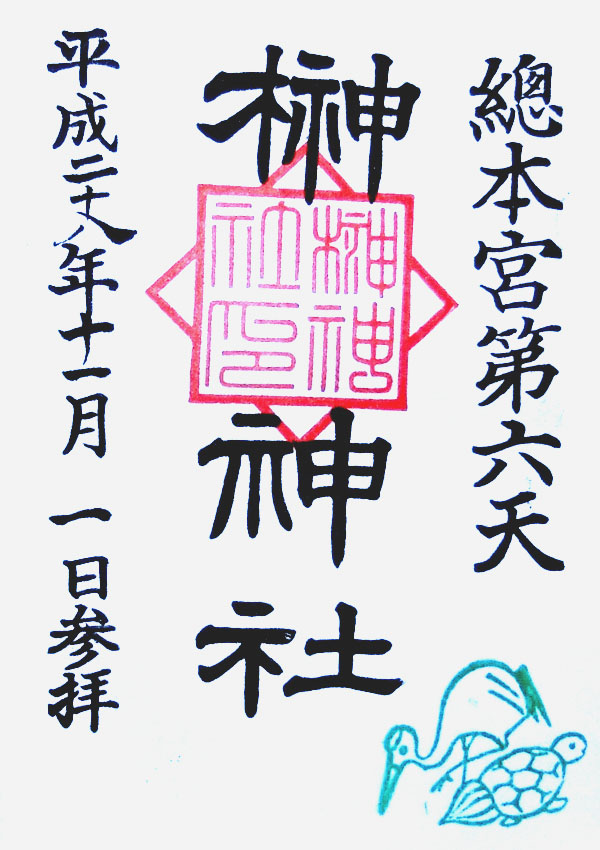 總本宮第六天
榊神社
榊神社印
平成二十八年十一月 一日参拝